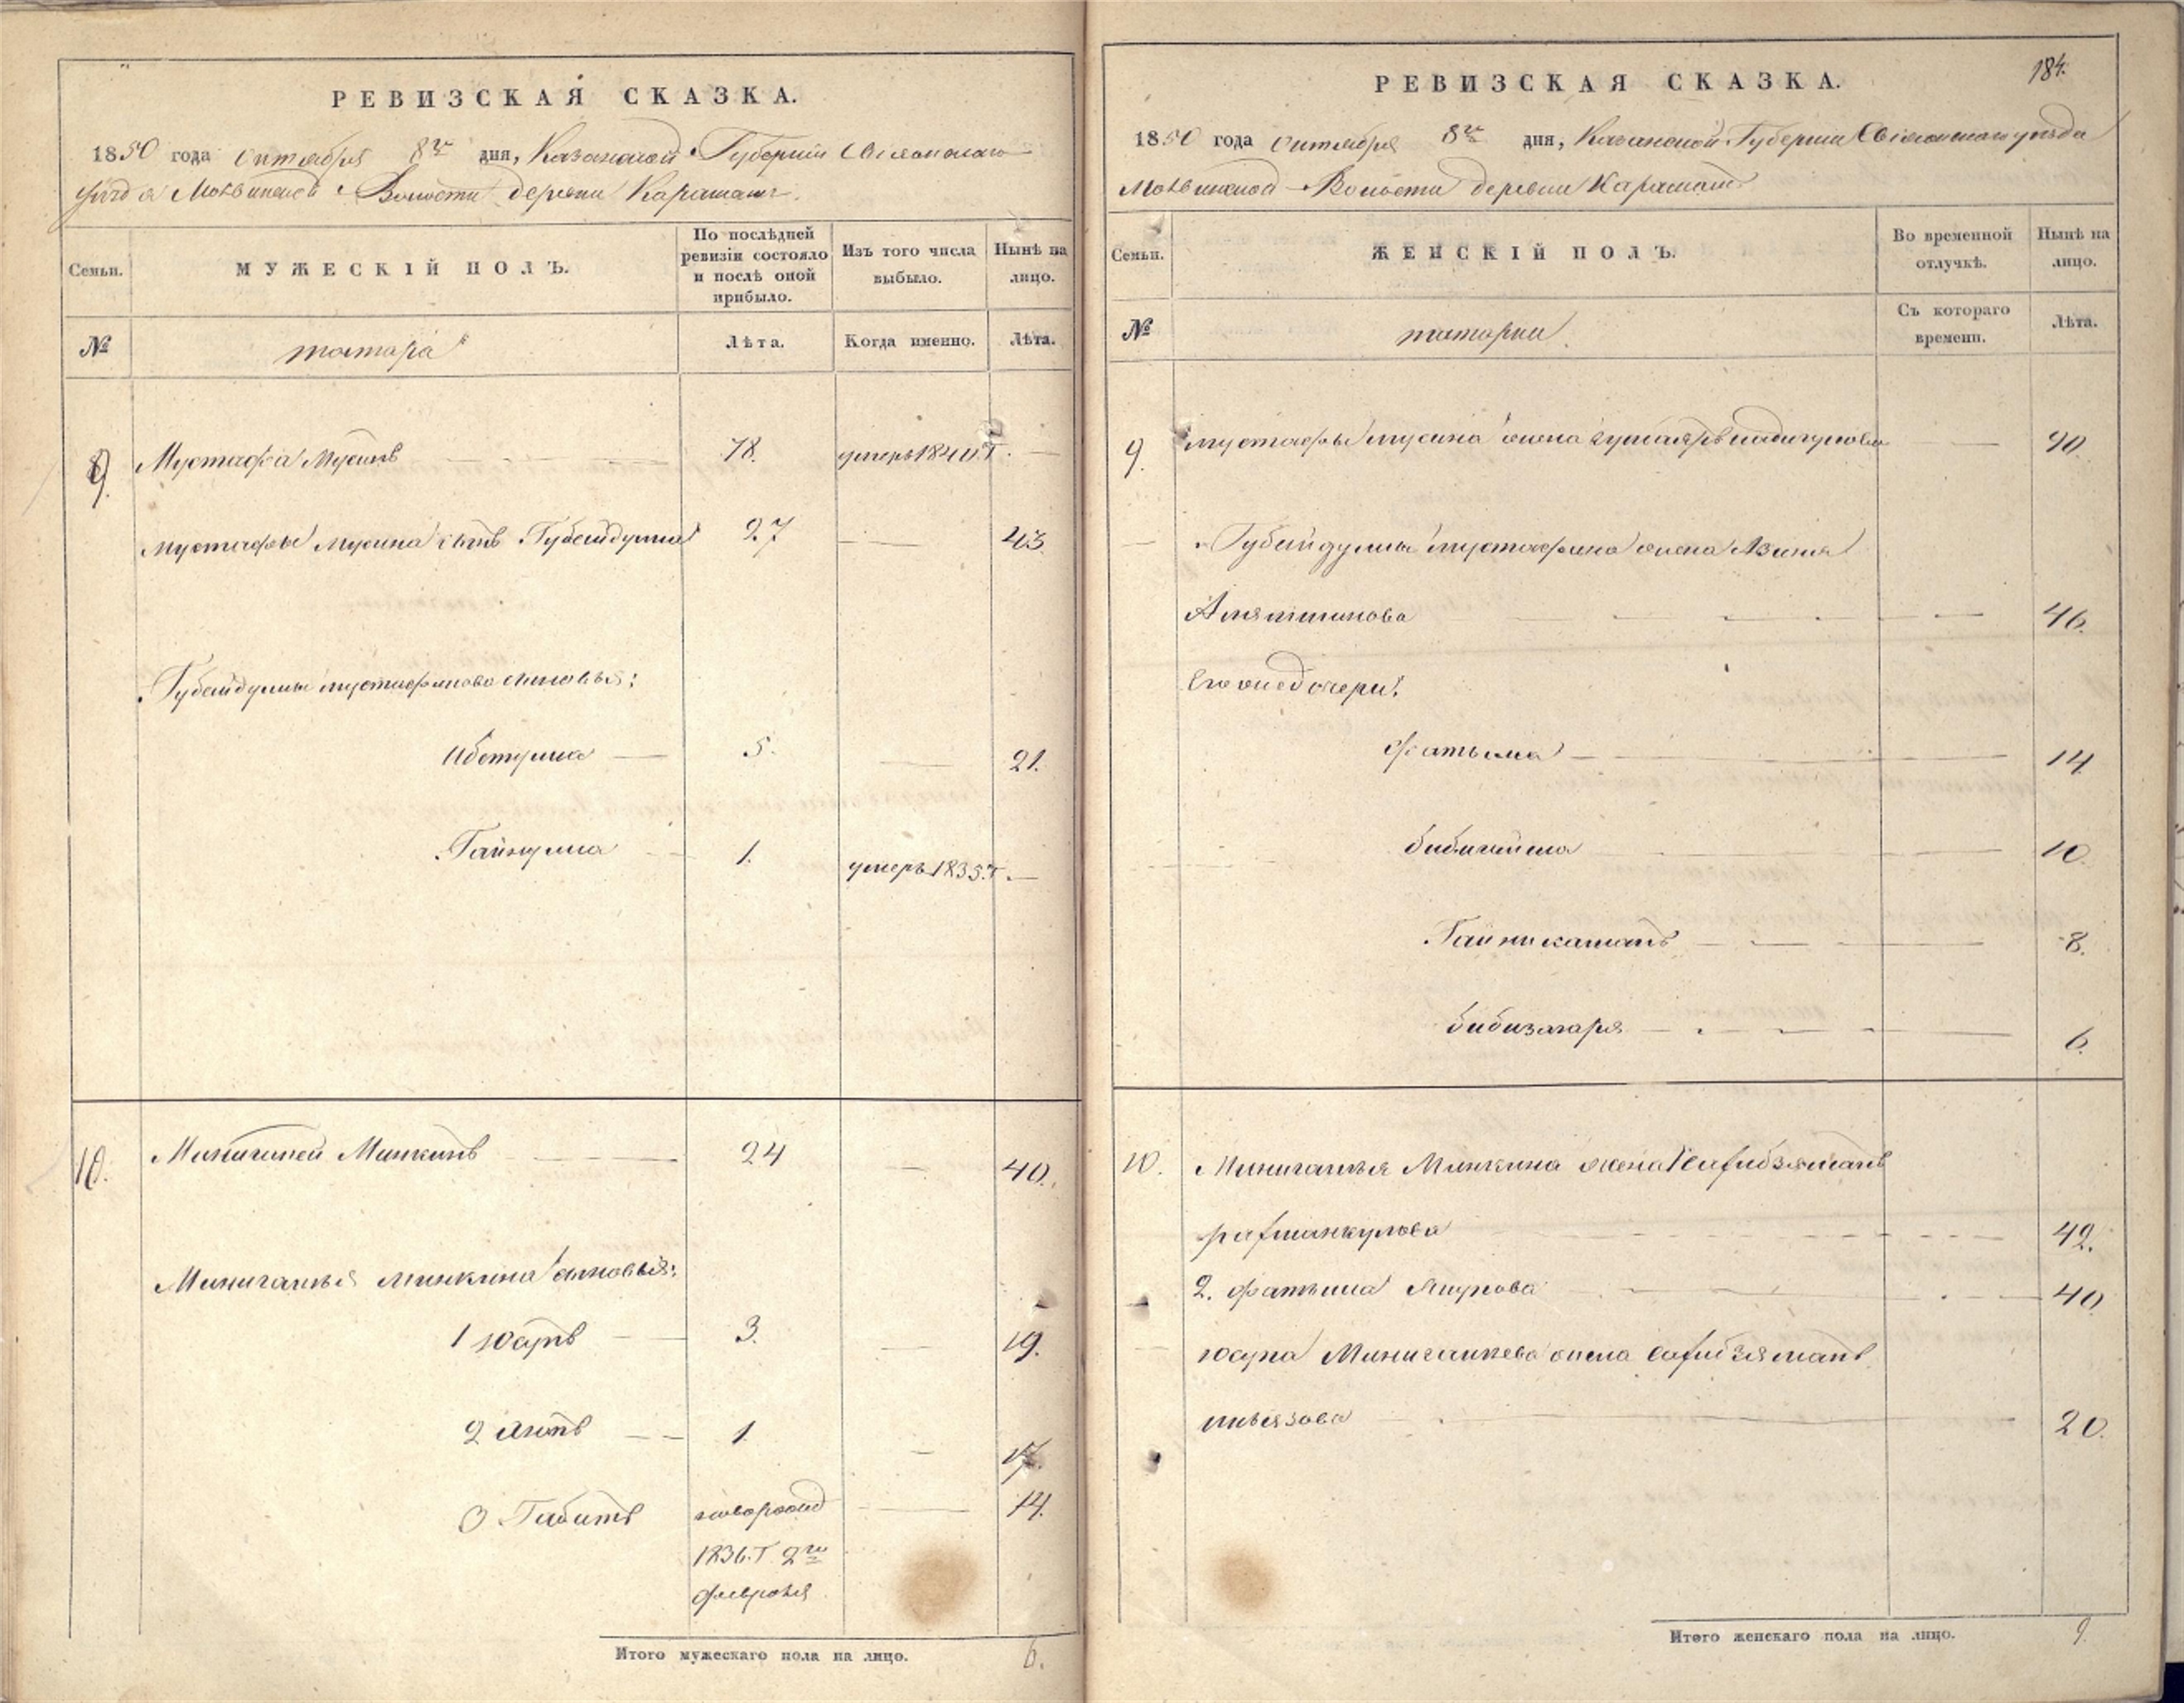 РЕВИЗСКАЯ СКАЗКА.
1850 года октября 8го дня, Казанской Губернии Свіяжскаго
уезда Молвинской Волости деревни Карашамъ
Семьи.
МУЖЕСКІЙ ПОЛЪ.
По послѣдней ревизіи состояло и послѣ оной прибыло.
Изъ того числа выбыло.
Нынѣ на лицо.
№
татара
Лѣта.
Когда именно.
Лѣта.
9. Мустафа Мусинъ 78. умеръ 1840.Г. —
Мустафы Мусина сынъ Губейдулла 27 — 43.
Губейдуллы Мустафинова сыновья:
5. — 21.
Гайнулла 1. умеръ 1835.Г. —
10. Минигалей Минкинъ 24 — 40.
Минигалѣя Минкина сыновья:
1 Юсупъ 3. — 19.
2 1. — 17.
3 Габитъ новорожд — 14.
1836.Г. 2го
февраля
Итого мужескаго пола на лицо. 6.
184.
РЕВИЗСКАЯ СКАЗКА.
1850 года октября 8го дня, Казанской Губернии Свіяжскаго уезда
Молвинской Волости деревни Карашамъ
Семьи.
ЖЕНСКІЙ ПОЛЪ.
Во временной отлучкѣ.
Нынѣ на лицо.
№
татарки
Съ котораго времени.
Лѣта.
9. Мустафы Мусина жена — 90.
Губейдуллы Мустафина жена
— 46.
Его же дочери:
Фатыма — 14.
— 10.
Гайникамалъ — 8.
бибизагаря — 6.
10. Минигалѣя Минкина жена
рахманкулова — 42.
2. Фатыма — 40.
Юсупа Минигалѣева жена
ильязова — 20.
Итого женскаго пола на лицо. 9.